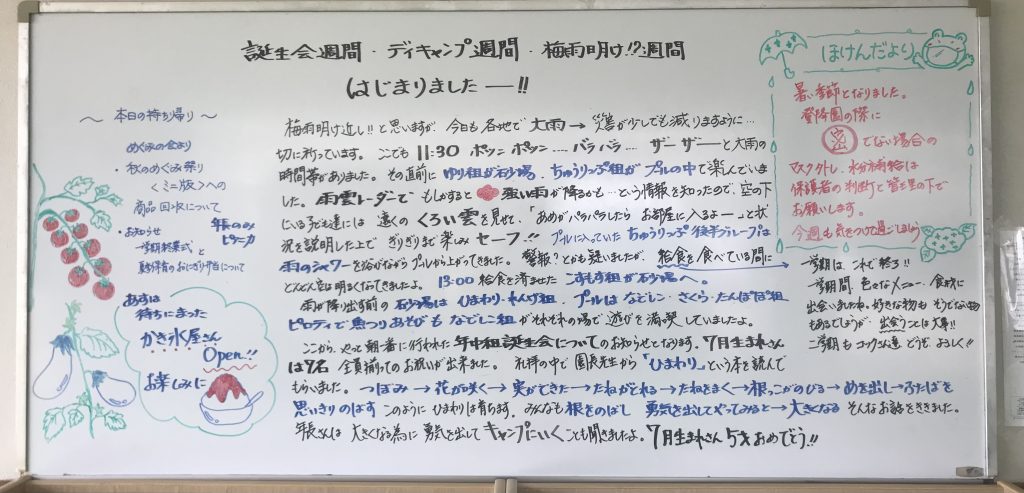 誕生会週間・デイキャンプ週間・梅雨明け!?週間
はじまりましたー!!
〜 本日の持ち帰り 〜
めぐみの会より
・秋のめぐみ祭り
<ミニ版>への
商品回収について
年長のみ
ピラニカ
・お知らせ
一学期終業式と
夏期保育のおにぎり弁当について
あすは
待ちにまった
かき氷屋さん
Open!!
お楽しみに
梅雨明け近し!!と思いますが、今日も各地で大雨→災害が少しでも減りますように…
切に祈っています。ここでも 11:30 ポツン ポツン… バラバラ… ザーザーーと大雨の
時間帯がありました。その直前に ゆり組が石砂場、ちゅうりっぷ組がプールの中で楽しんでいま
した。雨雲レーダーで もしかすると 強い雨が降るかも…という情報を知ったので、空の下
にいる子ども達には 遠くの くろい雲を見せて、「あめがパラパラしたら お部屋に入るよー」と状
況を説明した上で ぎりぎりまで楽しみ セーフ!! プールに入っていた ちゅうりっぷ後半グループは
雨のシャワーを浴びながらプールから上がってきました。警報?とかも疑いましたが、給食を食べている間に
どんどん空は明るくなってきましたよ。13:00 給食を済ませた こすもす組が石砂場へ。
雨が降り出す前の 石砂場は ひまわり・れんげ組、プールは なでしこ・さくら・たんぽぽ組
ピロティで魚つりあそびも なでしこ組がそれぞれの場で遊びを満喫していましたよ。
ここから、やっと朝一番に行われた 年中組誕生会についてのお知らせとなります。7月生まれさん
は9名 全員揃ってのお祝いが出来ました。礼拝の中で 園長先生から「ひまわり」という本を読んで
もらいました。つぼみ→花が咲く→実ができた→たねがとれる→たねをまく→根っこがのびる→めを出し→ふたばを
思いきりのばす このように ひまわりは育ちます。みんなも 根をのばし 勇気を出してやってみると→大きくなる そんなお話をききました。
年長さんは 大きくなる為に 勇気を出して キャンプにいくことも聞きましたよ。7月生まれさん 5才おめでとう!!
ほけんだより
暑い季節となりました。
登降園の際に
密でない場合の
マスク外し、水分補給は
保護者の判断と管理の下で
お願いします。
今週も気をつけて過ごしましょう
一学期は、これで終了!!
一学期間、色々なメニュー・食材に
出会いましたね。好きな物も そうでない物
もあるでしょうが、出会うことは大事!!
二学期も コックさん達 どうぞ よろしく!!